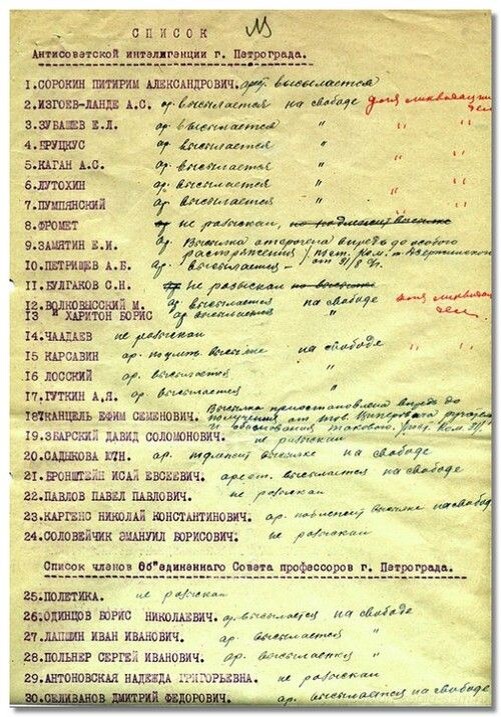 СПИСОК
Антисоветской интелигенции г. Петрограда.
1.СОРОКИН ПИТИРИМ АЛЕКСАНДРОВИЧ. высылается
2.ИЗГОЕВ-ЛАНДЕ А.С. ар. высылается на свободе для ликвидации
3.ЗУБАШЕВ Е.Л. ар. высылается " " "
4.БРУЦКУС ар. высылается "
5.КАГАН А.С. ар. высылается " " "
6.ЛУТОХИН ар. высылается "
7.ПУМПЯНСКИЙ ар. высылается " " "
8.ФРОМЕТ не разыскан,
9.ЗАМЯТИН Е.И. ар. Высылка отсрочена впредь до особого
распоряжения
10.ПЕТРИЩЕВ А.Б. ар. высылается – от 31/8
11.БУЛГАКОВ С.Н. не разыскан
12.ВОЛКОВЫССКИЙ М. ар высылается на свободе для ликвид
13 И ХАРИТОН БОРИС ар высылается " дел.
14.ЧААДАЕВ не разыскан
15 КАРСАВИН ар. высылке на свободе " "
16 ЛОССКИЙ ар. высылается "
17.ГУТКИН А,Я. ар. высылается "
18 КАНЦЕЛЬ ЕФИМ СЕМЕНОВИЧ. Высылка приостановлена впредь до
получения от тов.
и
19.ЗБАРСКИЙ ДАВИД СОЛОМОНОВИЧ. не разыскан
20.САДЫКОВА ар. подлежит высылке на свободе
21.БРОНШТЕЙН ИСАЙ ЕВСЕЕВИЧ. арест. высылается на свободе
22.ПАВЛОВ ПАВЕЛ ПАВЛОВИЧ. не разыскан
23.КАРГЕНС НИКОЛАЙ КОНСТАНТИНОВИЧ. ар. подлежит высылке на свобод
24.СОЛОВЕЙЧИК ЭМАНУИЛ БОРИСОВИЧ. не разыскан
Список членов Об"единенного Совета профессоров г. Петрограда.
25.ПОЛЕТИКА. не разыскан
26.ОДИНЦОВ БОРИС НИКОЛАЕВИЧ. ар. высылается на свободе
27.ЛАПШИН ИВАН ИВАНОВИЧ. ар. высылается "
28.ПОЛЬНЕР СЕРГЕЙ ИВАНОВИЧ. ар. высылается "
29.АНТОНОВСКАЯ НАДЕЖДА ГРИГОРЬЕВНА. не разыскан
30.СЕЛИВАНОВ ДМИТРИЙ ФЕДОРОВИЧ. ар. высылается на свободе